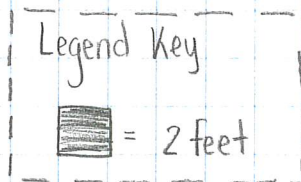 Legend Key
= 2 feet